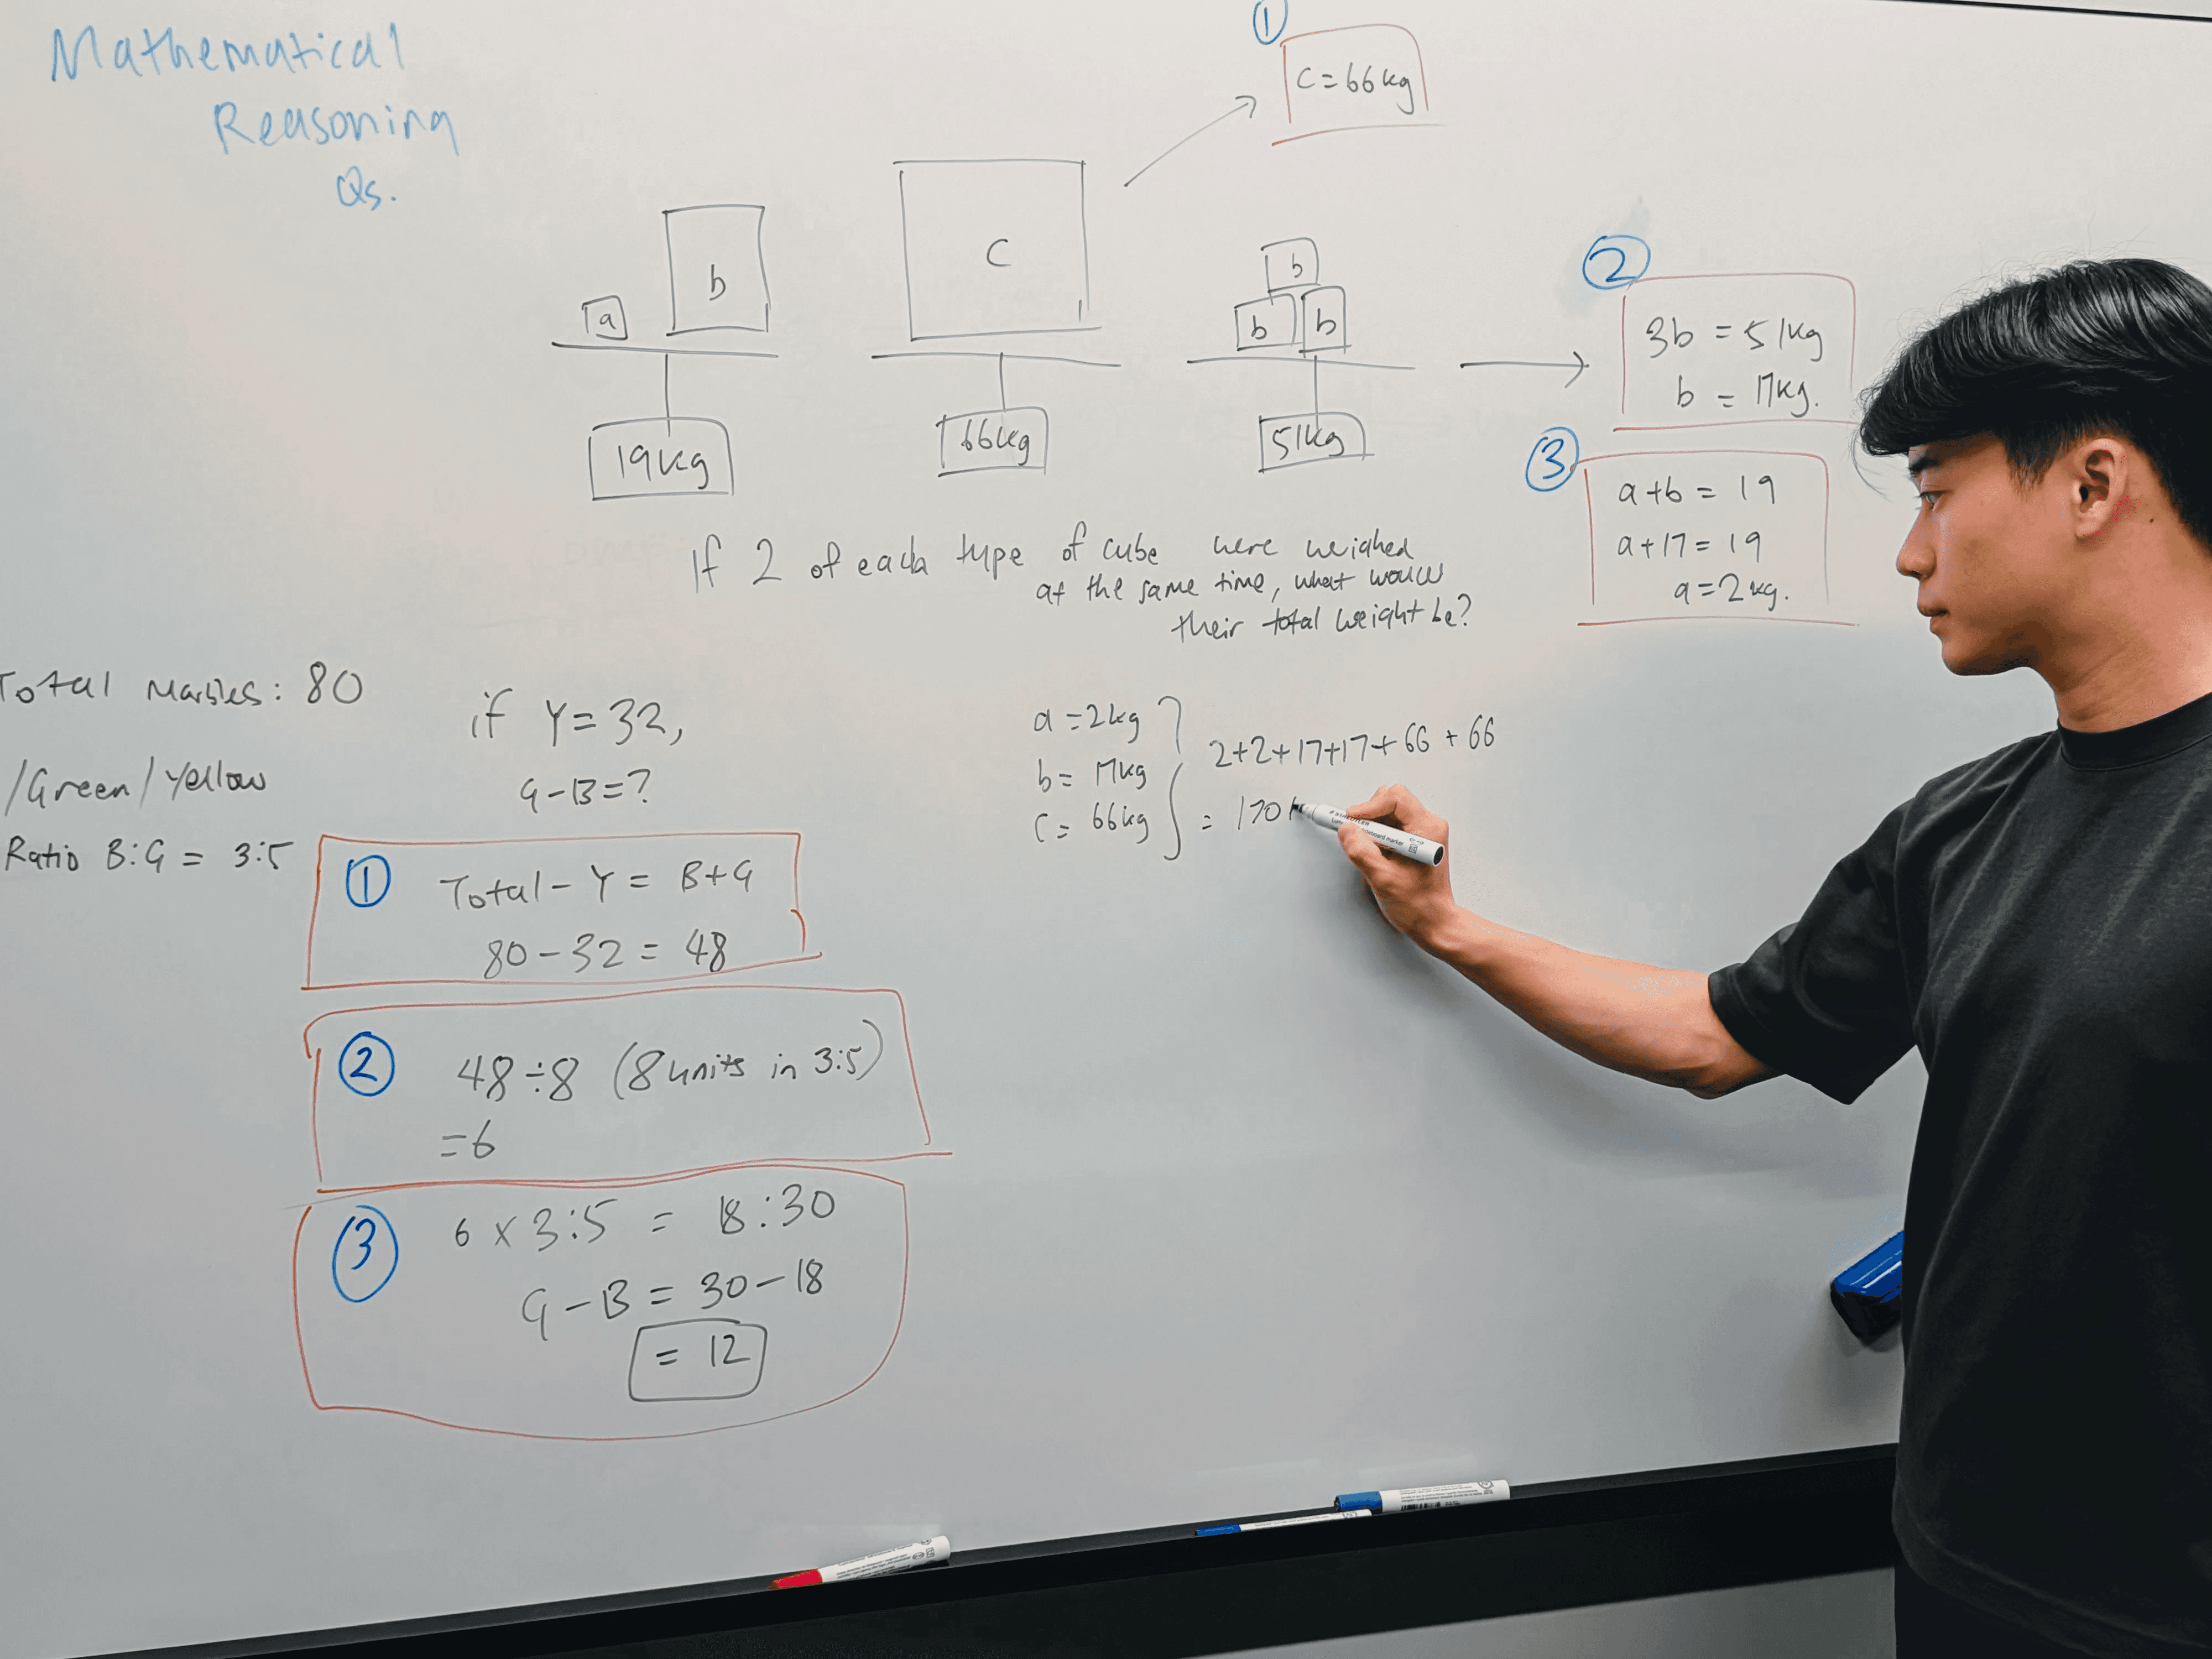 Mathematical
Reasoning
Qs.
1
C = 66kg
a
b
C
b
b
b
19kg
66kg
51kg
2
3b = 51kg
b = 17kg.
3
a + b = 19
a + 17 = 19
a = 2kg.
If 2 of each type of cube were weighed
at the same time, what would
their total weight be?
Total Marbles: 80
/Green/Yellow
Ratio B:G = 3:5
if Y = 32,
G - B = ?
1
Total - Y = B + G
80 - 32 = 48
2
48 ÷ 8 (8 units in 3:5)
= 6
3
6 x 3:5 = 18:30
G - B = 30 - 18
= 12
a = 2kg
b = 17kg
C = 66kg
2+2+17+17+66+66
= 170 k
STAEDTLER